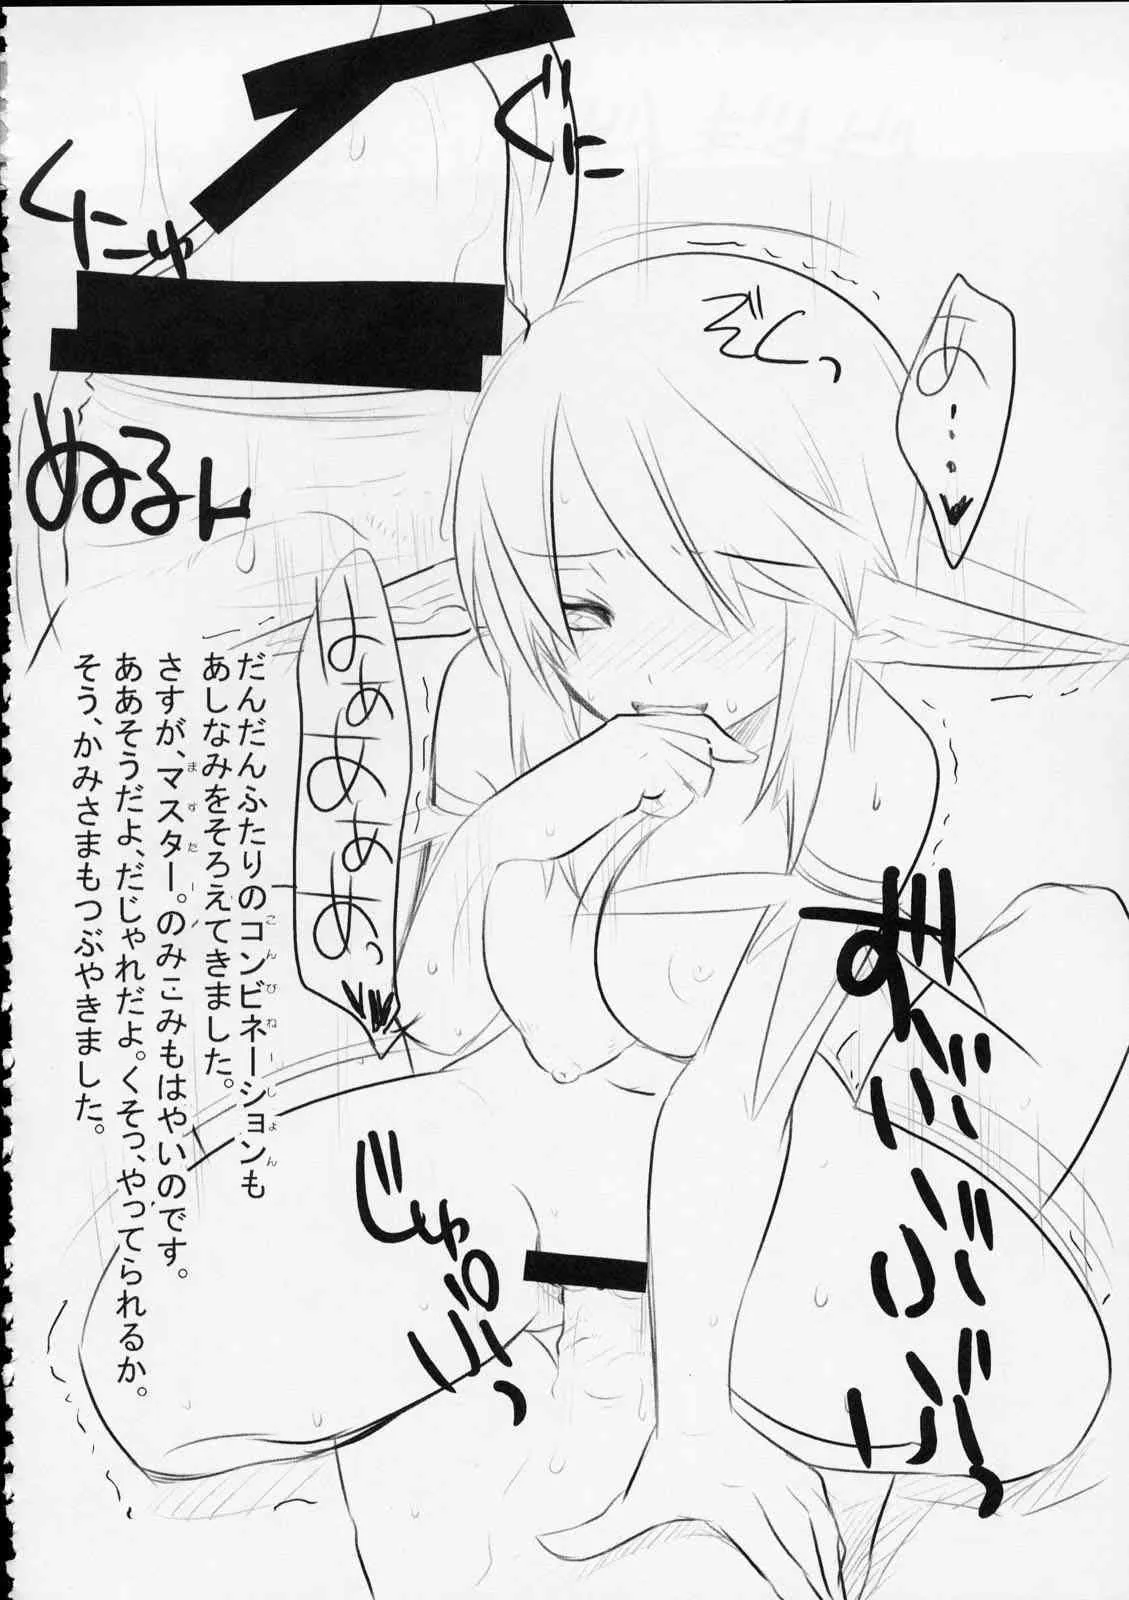 ぐに
くにゅ
ぬるん
ぞくっ
あ…
はぁあぁあっ
だんだんふたりのコンビネーションも
こんびねーしょん
あしなみをそろえてきました。
さすが、マスター。のみこみもはやいのです。
ますたー
ああそうだよ、だじゃれだよ。くそっ、やってられるか。
そう、かみさまもつぶやきました。